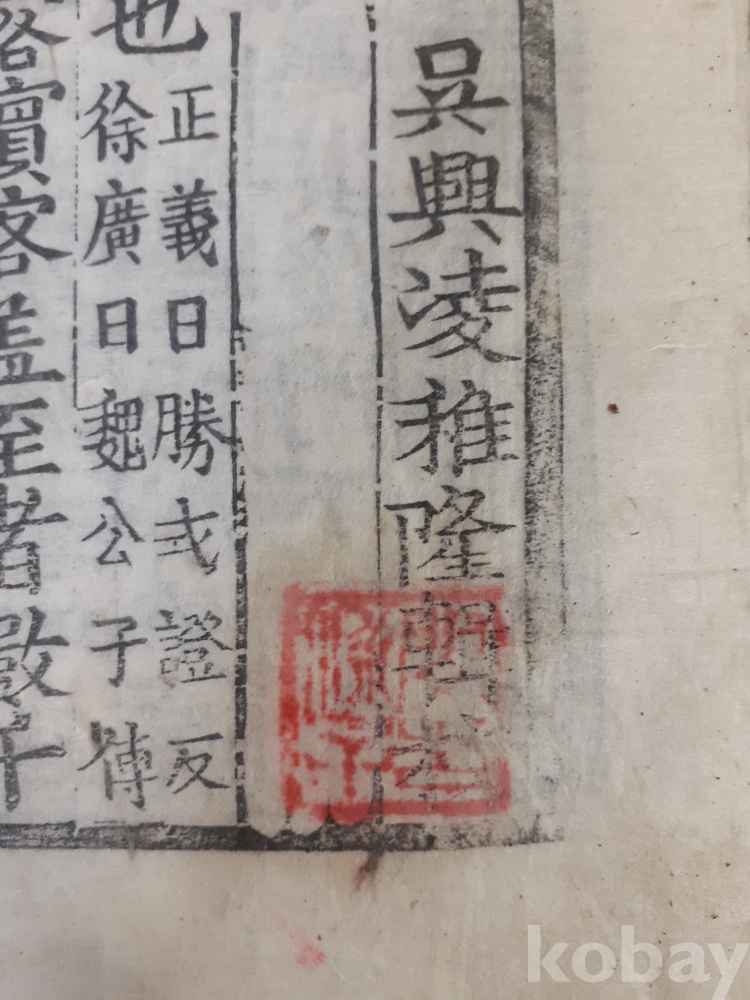 吳興凌稚隆輯校
也
正義曰勝式證反
徐廣曰魏公子傳
賓客蓋至者數千
kobay